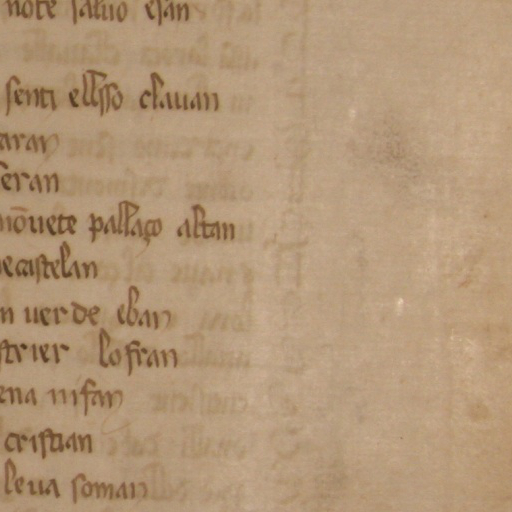 note saluo esan
senti ellsso clauan
aran
feran
nōuete pallaço altan
ecastelan
n uerde eban
strier lofran
ena nifan
cristian
leua soman